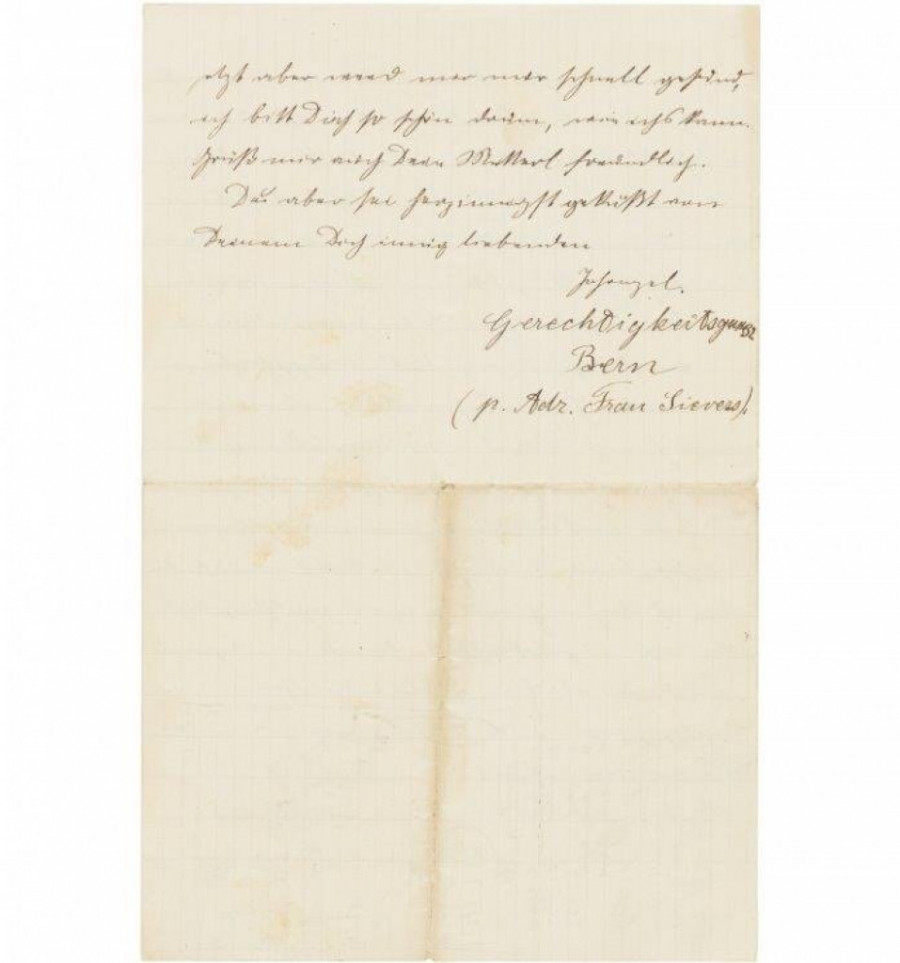 jetzt aber werd mir nur schnell gesund,
ich bitt Dich so schön drum, wie ichs kann.
Grüß mir auch Dein Mutterl freundlich.
Du aber sei herzinnigst geküßt von
Deinem Dich innig liebenden
Johonzel.
Gerechtigkeitsgasse 32
Bern
(p. Adr. Frau Sievers).